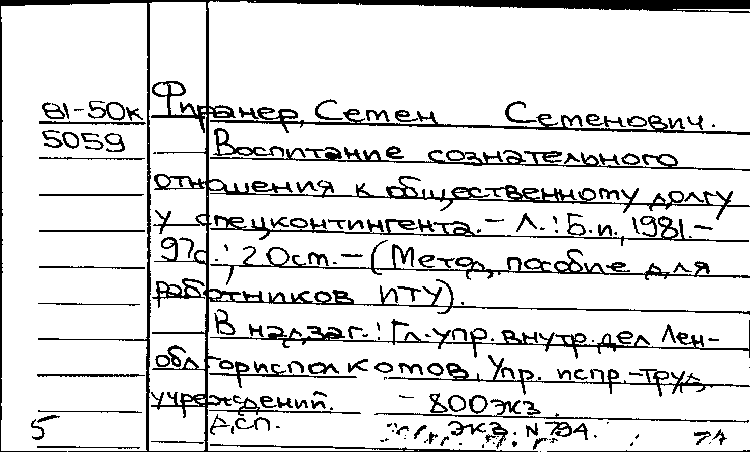 81-50к Фиранер, Семен Семенович.
5059 Воспитание сознательного
отношения к общественному долгу
у спецконтингента. - Л.: Б.и., 1981. -
97с.; 20см. - (Метод. пособие для
работников ИТУ).
В надзаг.: Гл. упр. внутр. дел Лен-
облгорисполкомов, Упр. испр.-труд.
учреждений. - 800экз.
5 Д,сп. экз. N 794.